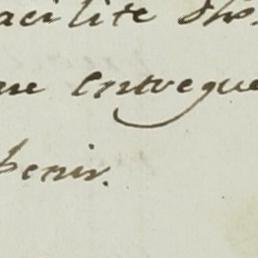 acilite d'ho
ne entregue
benir.